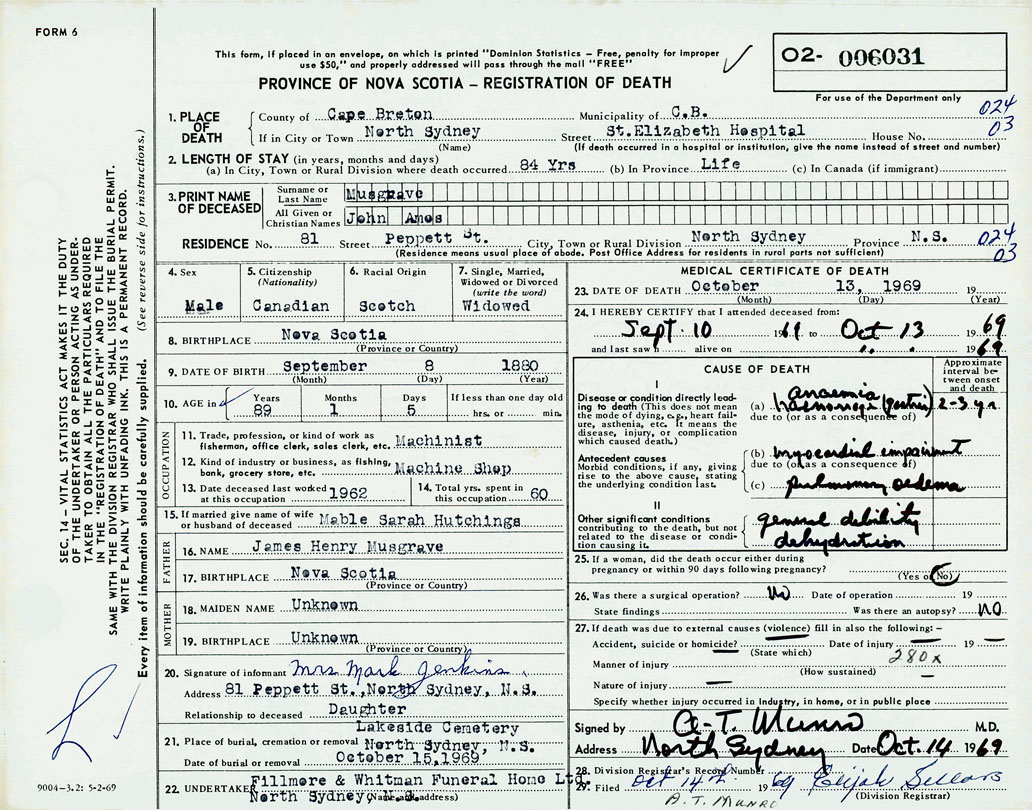 FORM 6
This form, if placed in an envelope, on which is printed "Dominion Statistics – Free, penalty for improper
use $50," and properly addressed will pass through the mail "FREE"
02- 006031
PROVINCE OF NOVA SCOTIA – REGISTRATION OF DEATH
For use of the Department only
1. PLACE OF DEATH
County of Cape Breton Municipality of C.B. 024
If in City or Town North Sydney Street St.Elizabeth Hospital House No. 03
(Name) (If death occurred in a hospital or institution, give the name instead of street and number)
2. LENGTH OF STAY (in years, months and days)
(a) In City, Town or Rural Division where death occurred 84 Yrs (b) In Province Life (c) In Canada (if immigrant)
3. PRINT NAME OF DECEASED
Surname or Last Name Musgrave
All Given or Christian Names John Amos
RESIDENCE No. 81 Street Peppett St. City, Town or Rural Division North Sydney Province N.S. 024
(Residence means usual place of abode. Post Office Address for residents in rural parts not sufficient) 03
4. Sex
Male
5. Citizenship
(Nationality)
Canadian
6. Racial Origin
Scotch
7. Single, Married,
Widowed or Divorced
(write the word)
Widowed
8. BIRTHPLACE Nova Scotia
(Province or Country)
9. DATE OF BIRTH September 8 1880
(Month) (Day) (Year)
10. AGE in Years Months Days If less than one day old
89 1 5 hrs. or min.
OCCUPATION
11. Trade, profession, or kind of work as
fisherman, office clerk, sales clerk, etc. Machinist
12. Kind of industry or business, as fishing,
bank, grocery store, etc. Machine Shop
13. Date deceased last worked
at this occupation 1962
14. Total yrs. spent in
this occupation 60
15. If married give name of wife
or husband of deceased Mable Sarah Hutchings
FATHER
16. NAME James Henry Musgrave
17. BIRTHPLACE Nova Scotia
(Province or Country)
MOTHER
18. MAIDEN NAME Unknown
19. BIRTHPLACE Unknown
(Province or Country)
20. Signature of informant Mrs Mark Jenkins
Address 81 Peppett St., North Sydney, N.S.
Relationship to deceased Daughter
Lakeside Cemetery
21. Place of burial, cremation or removal North Sydney, N.S.
Date of burial or removal October 15,1969
Fillmore & Whitman Funeral Home Ltd.
22. UNDERTAKER North Sydney, N.S.
(Name and address)
MEDICAL CERTIFICATE OF DEATH
23. DATE OF DEATH October 13, 1969 19
(Month) (Day) (Year)
24. I HEREBY CERTIFY that I attended deceased from:
Sept. 10 1969 to Oct 13 1969
and last saw h alive on " " 1969
CAUSE OF DEATH
Approximate
interval be-
tween onset
and death
I
Disease or condition directly lead-
ing to death (This does not mean
the mode of dying, e.g., heart fail-
ure, asthenia, etc. It means the
disease, injury, or complication
which caused death.)
anaemia
(a) haemorrage (gastric) 2-3 yr.
due to (or as a consequence of)
Antecedent causes
Morbid conditions, if any, giving
rise to the above cause, stating
the underlying condition last.
(b) myocardial impairment
due to (or as a consequence of)
(c) pulmonary oedema
II
Other significant conditions
contributing to the death, but not
related to the disease or condi-
tion causing it.
general debility
dehydration
25. If a woman, did the death occur either during
pregnancy or within 90 days following pregnancy?
(Yes or No)
26. Was there a surgical operation? No Date of operation 19
State findings Was there an autopsy? NO
27. If death was due to external causes (violence) fill in also the following: –
Accident, suicide or homicide? Date of injury 19
(State which) 280x
Manner of injury
(How sustained)
Nature of injury
Specify whether injury occurred in industry, in home, or in public place
Signed by A-T. Munro M.D.
Address North Sydney Date Oct. 14 1969
28. Division Registrar's Record Number
29. Filed Oct 14th 1969 Elijah Sellars
(Division Registrar)
A.T. MUNRO
SEC. 14 – VITAL STATISTICS ACT MAKES IT THE DUTY
OF THE UNDERTAKER OR PERSON ACTING AS UNDER-
TAKER TO OBTAIN ALL THE PARTICULARS REQUIRED
IN THE "REGISTRATION OF DEATH" AND TO FILE THE
SAME WITH THE DIVISION REGISTRAR WHO SHALL ISSUE THE BURIAL PERMIT.
WRITE PLAINLY WITH UNFADING INK. THIS IS A PERMANENT RECORD.
Every item of information should be carefully supplied. (See reverse side for instructions.)
9004-3.2: 5-2-69